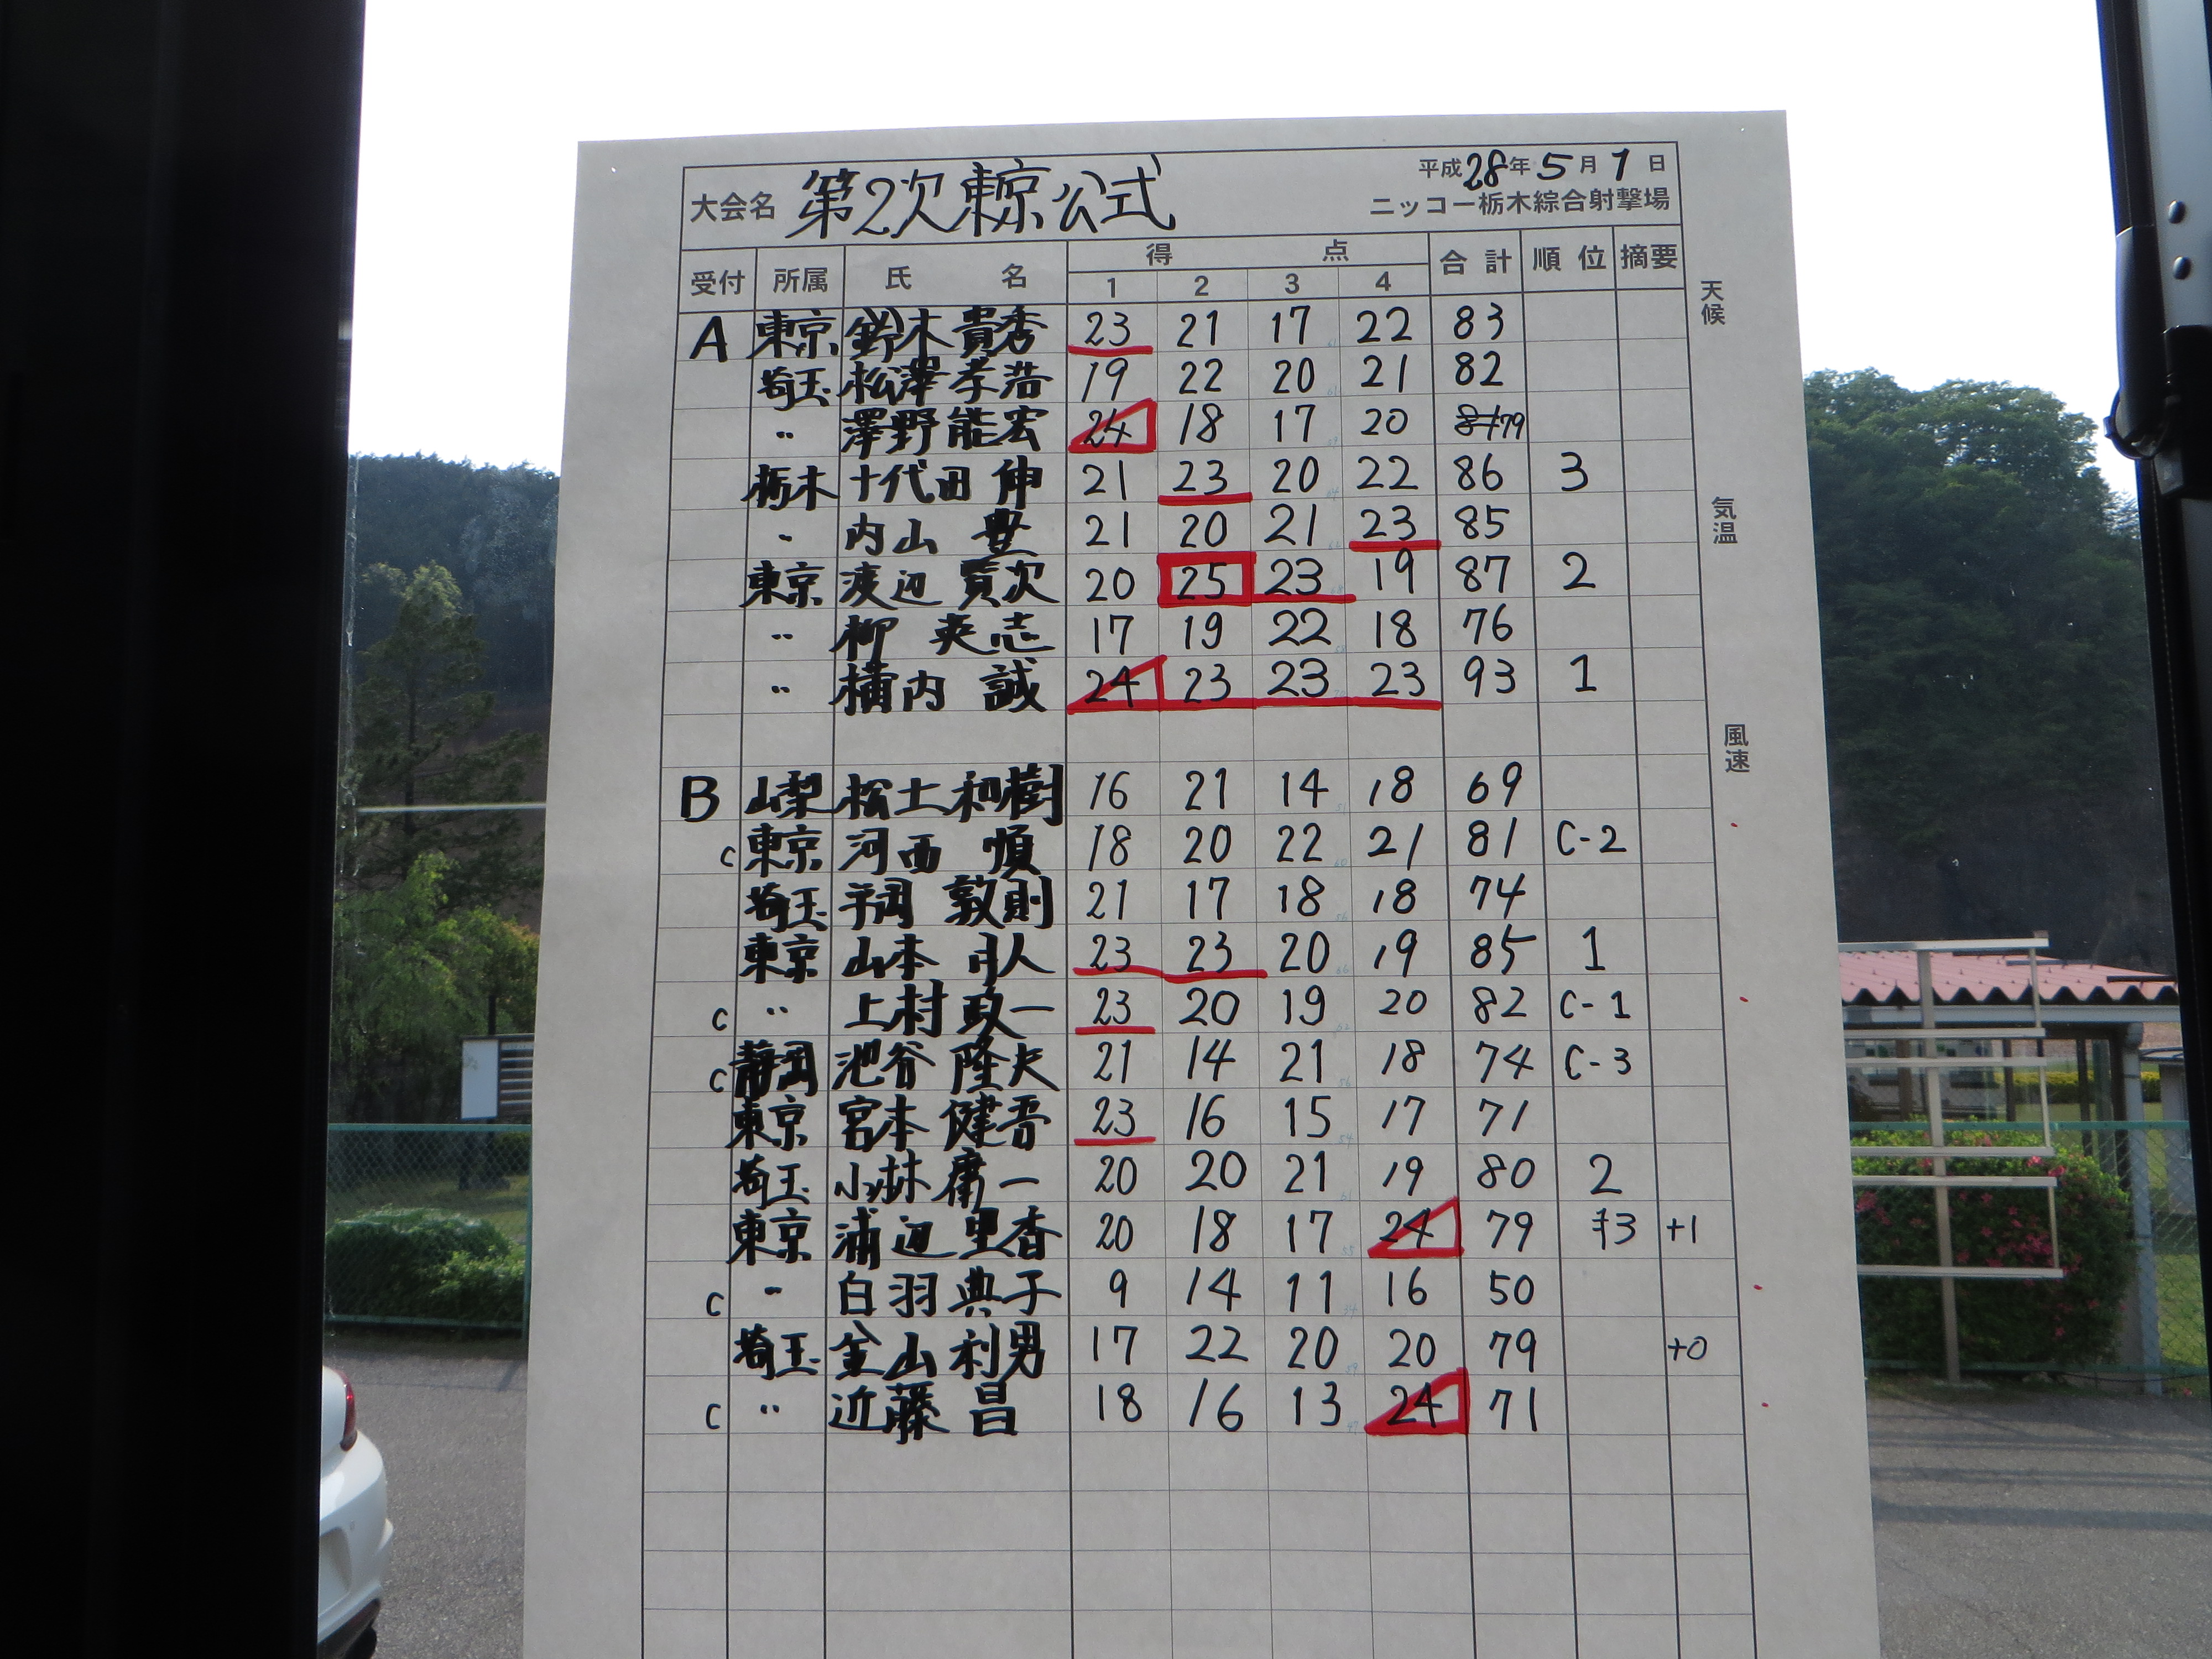 平成28年5月1日
大会名 第2次東京公式
ニッコー栃木綜合射撃場
受付 所属 氏名 得点 合計 順位 摘要
1 2 3 4
天候
気温
風速
A 東京 鈴木貴秀 23 21 17 22 83
埼玉 松澤孝浩 19 22 20 21 82
〃 澤野能宏 24 18 17 20 79
栃木 十代田 伸 21 23 20 22 86 3
〃 内山 豊 21 20 21 23 85
東京 渡辺 賢次 20 25 23 19 87 2
〃 柳 英志 17 19 22 18 76
〃 横内 誠 24 23 23 23 93 1
B 山梨 松土和樹 16 21 14 18 69
C 東京 河西 順 18 20 22 21 81 C-2
埼玉 手岡 敦則 21 17 18 18 74
東京 山本 人 23 23 20 19 85 1
C 〃 上村政一 23 20 19 20 82 C-1
C 静岡 池谷 隆夫 21 14 21 18 74 C-3
東京 宮本 健吾 23 16 15 17 71
埼玉 小林 一 20 20 21 19 80 2
東京 浦辺里香 20 18 17 24 79 3 +1
C 〃 白羽典子 9 14 11 16 50
埼玉 釜山利男 17 22 20 20 79 +0
C 〃 近藤 昌 18 16 13 24 71